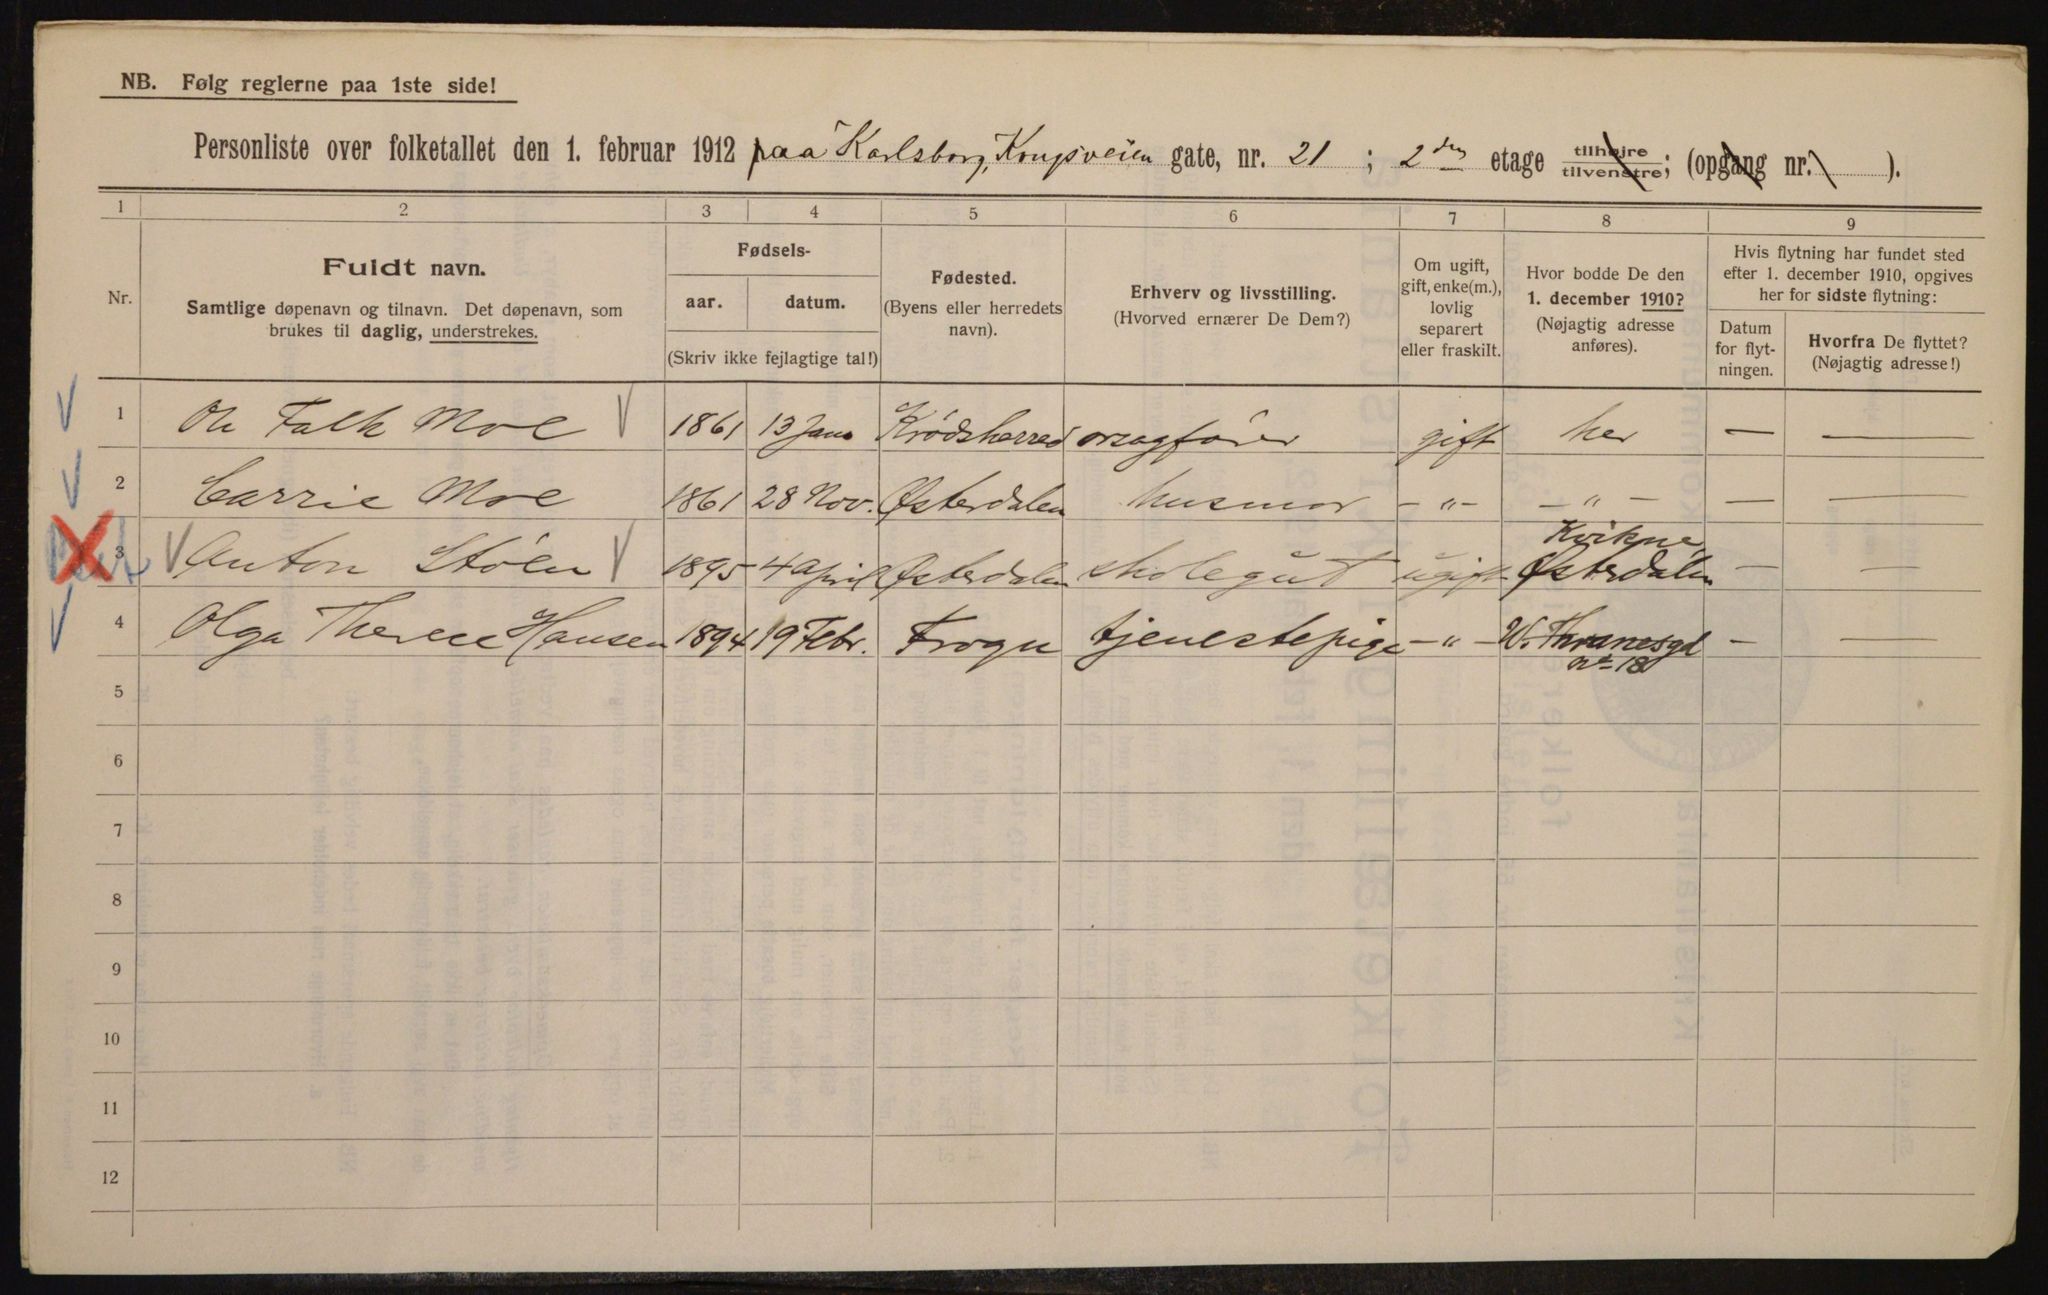 NB. Følg reglerne paa 1ste side!
Personliste over folketallet den 1. februar 1912 paa Karlsborg, Kongsveien gate, nr. 21 ; 2den etage tilhøire tilvenstre; (opgang nr. ).
1 2 3 4 5 6 7 8 9
Nr.
Fuldt navn.
Samtlige døpenavn og tilnavn. Det døpenavn, som
brukes til daglig, understrekes.
Fødsels-
aar. datum.
(Skriv ikke fejlagtige tal!)
Fødested.
(Byens eller herredets
navn).
Erhverv og livsstilling.
(Hvorved ernærer De Dem?)
Om ugift,
gift, enke(m.),
lovlig
separert
eller fraskilt.
Hvor bodde De den
1. december 1910?
(Nøjagtig adresse
anføres).
Hvis flytning har fundet sted
efter 1. december 1910, opgives
her for sidste flytning:
Datum
for flyt-
ningen.
Hvorfra De flyttet?
(Nøjagtig adresse!)
1 Ole Falk Moe 1861 13 Jan Krødsherred orsagfører gift her — —
2 Carrie Moe 1861 28 Nov. Østerdalen husmor - „ - - „ - — —
3 Anton Støen 1895 4 april Østerdalen skolegut ugift Kvikne Østerdalen — —
4 Olga Therese Hansen 1894 19 Febr. Frogn tjenestepige - „ - W. Thranesgd — —
nr 18
5
6
7
8
9
10
11
12